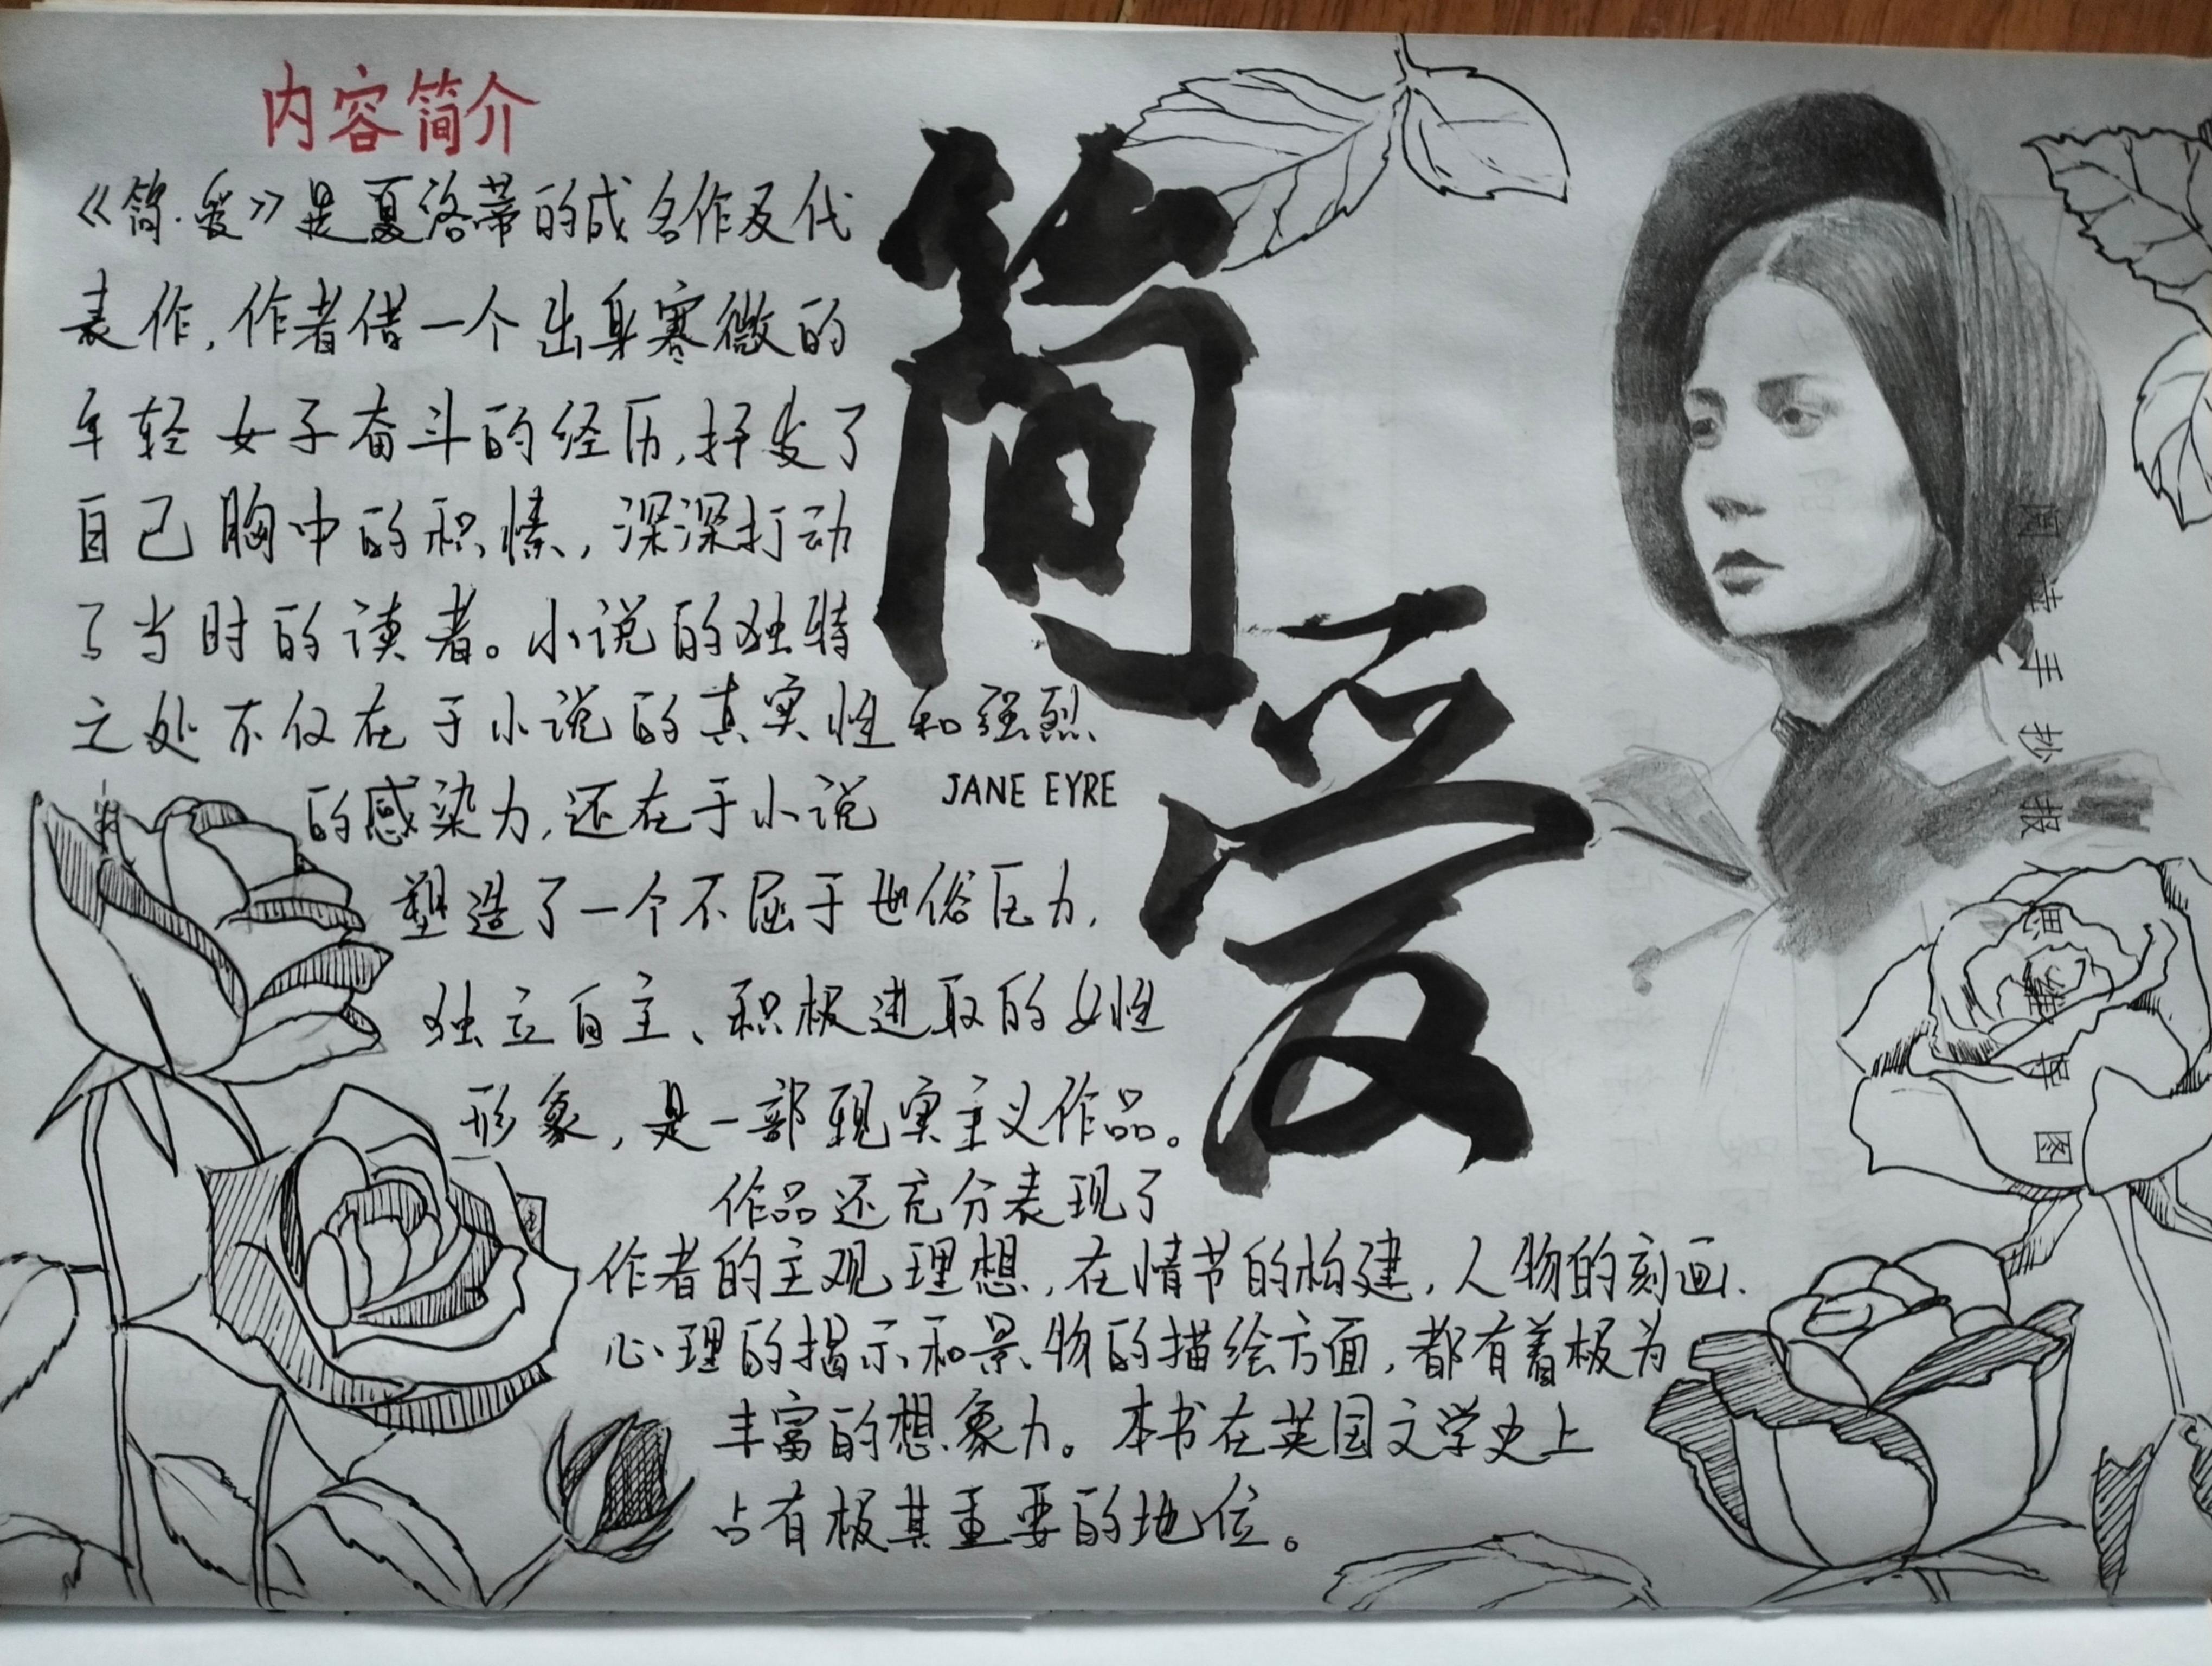 内容简介
《简·爱》是夏洛蒂的成名作及代
表作,作者借一个出身寒微的
年轻女子奋斗的经历,抒发了
自己胸中的积愫,深深打动
了当时的读者。小说的独特
之处不仅在于小说的真实性和强烈
的感染力,还在于小说
塑造了一个不屈于世俗压力,
独立自主、积极进取的女性
形象,是一部现实主义作品。
作品还充分表现了
作者的主观理想,在情节的构建,人物的刻画、
心理的揭示和景物的描绘方面,都有着极为
丰富的想象力。本书在英国文学史上
占有极其重要的地位。
简爱
JANE EYRE
阅读手抄报
思维导图